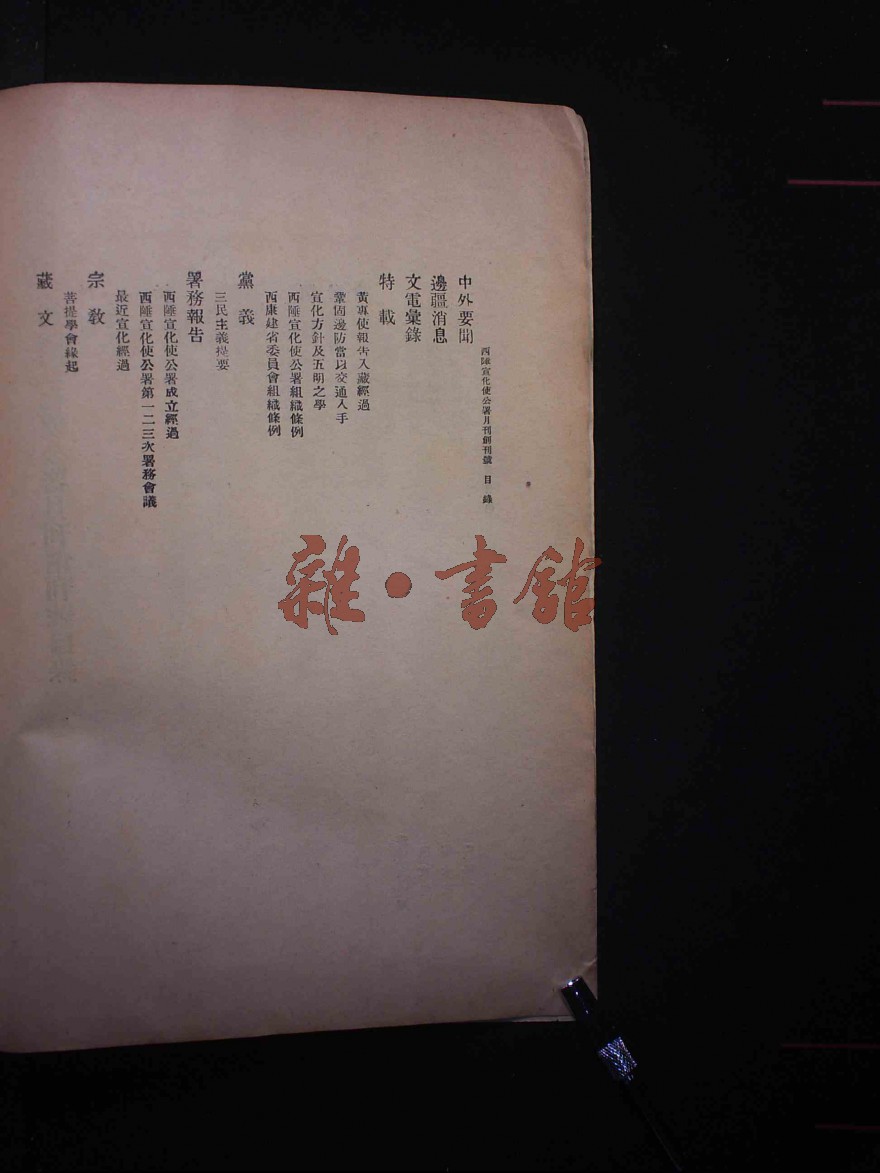 西陲宣化使公署月刊創刊號 目 錄
中外要聞
邊疆消息
文電彙錄
特 載
黃專使報告入藏經過
鞏固邊防當以交通入手
宣化方針及五明之學
西陲宣化使公署組織條例
西康建省委員會組織條例
黨 義
三民主義提要
署務報告
西陲宣化使公署成立經過
西陲宣化使公署第一二三次署務會議
最近宣化經過
宗 教
菩提學會緣起
藏 文
雜·書館